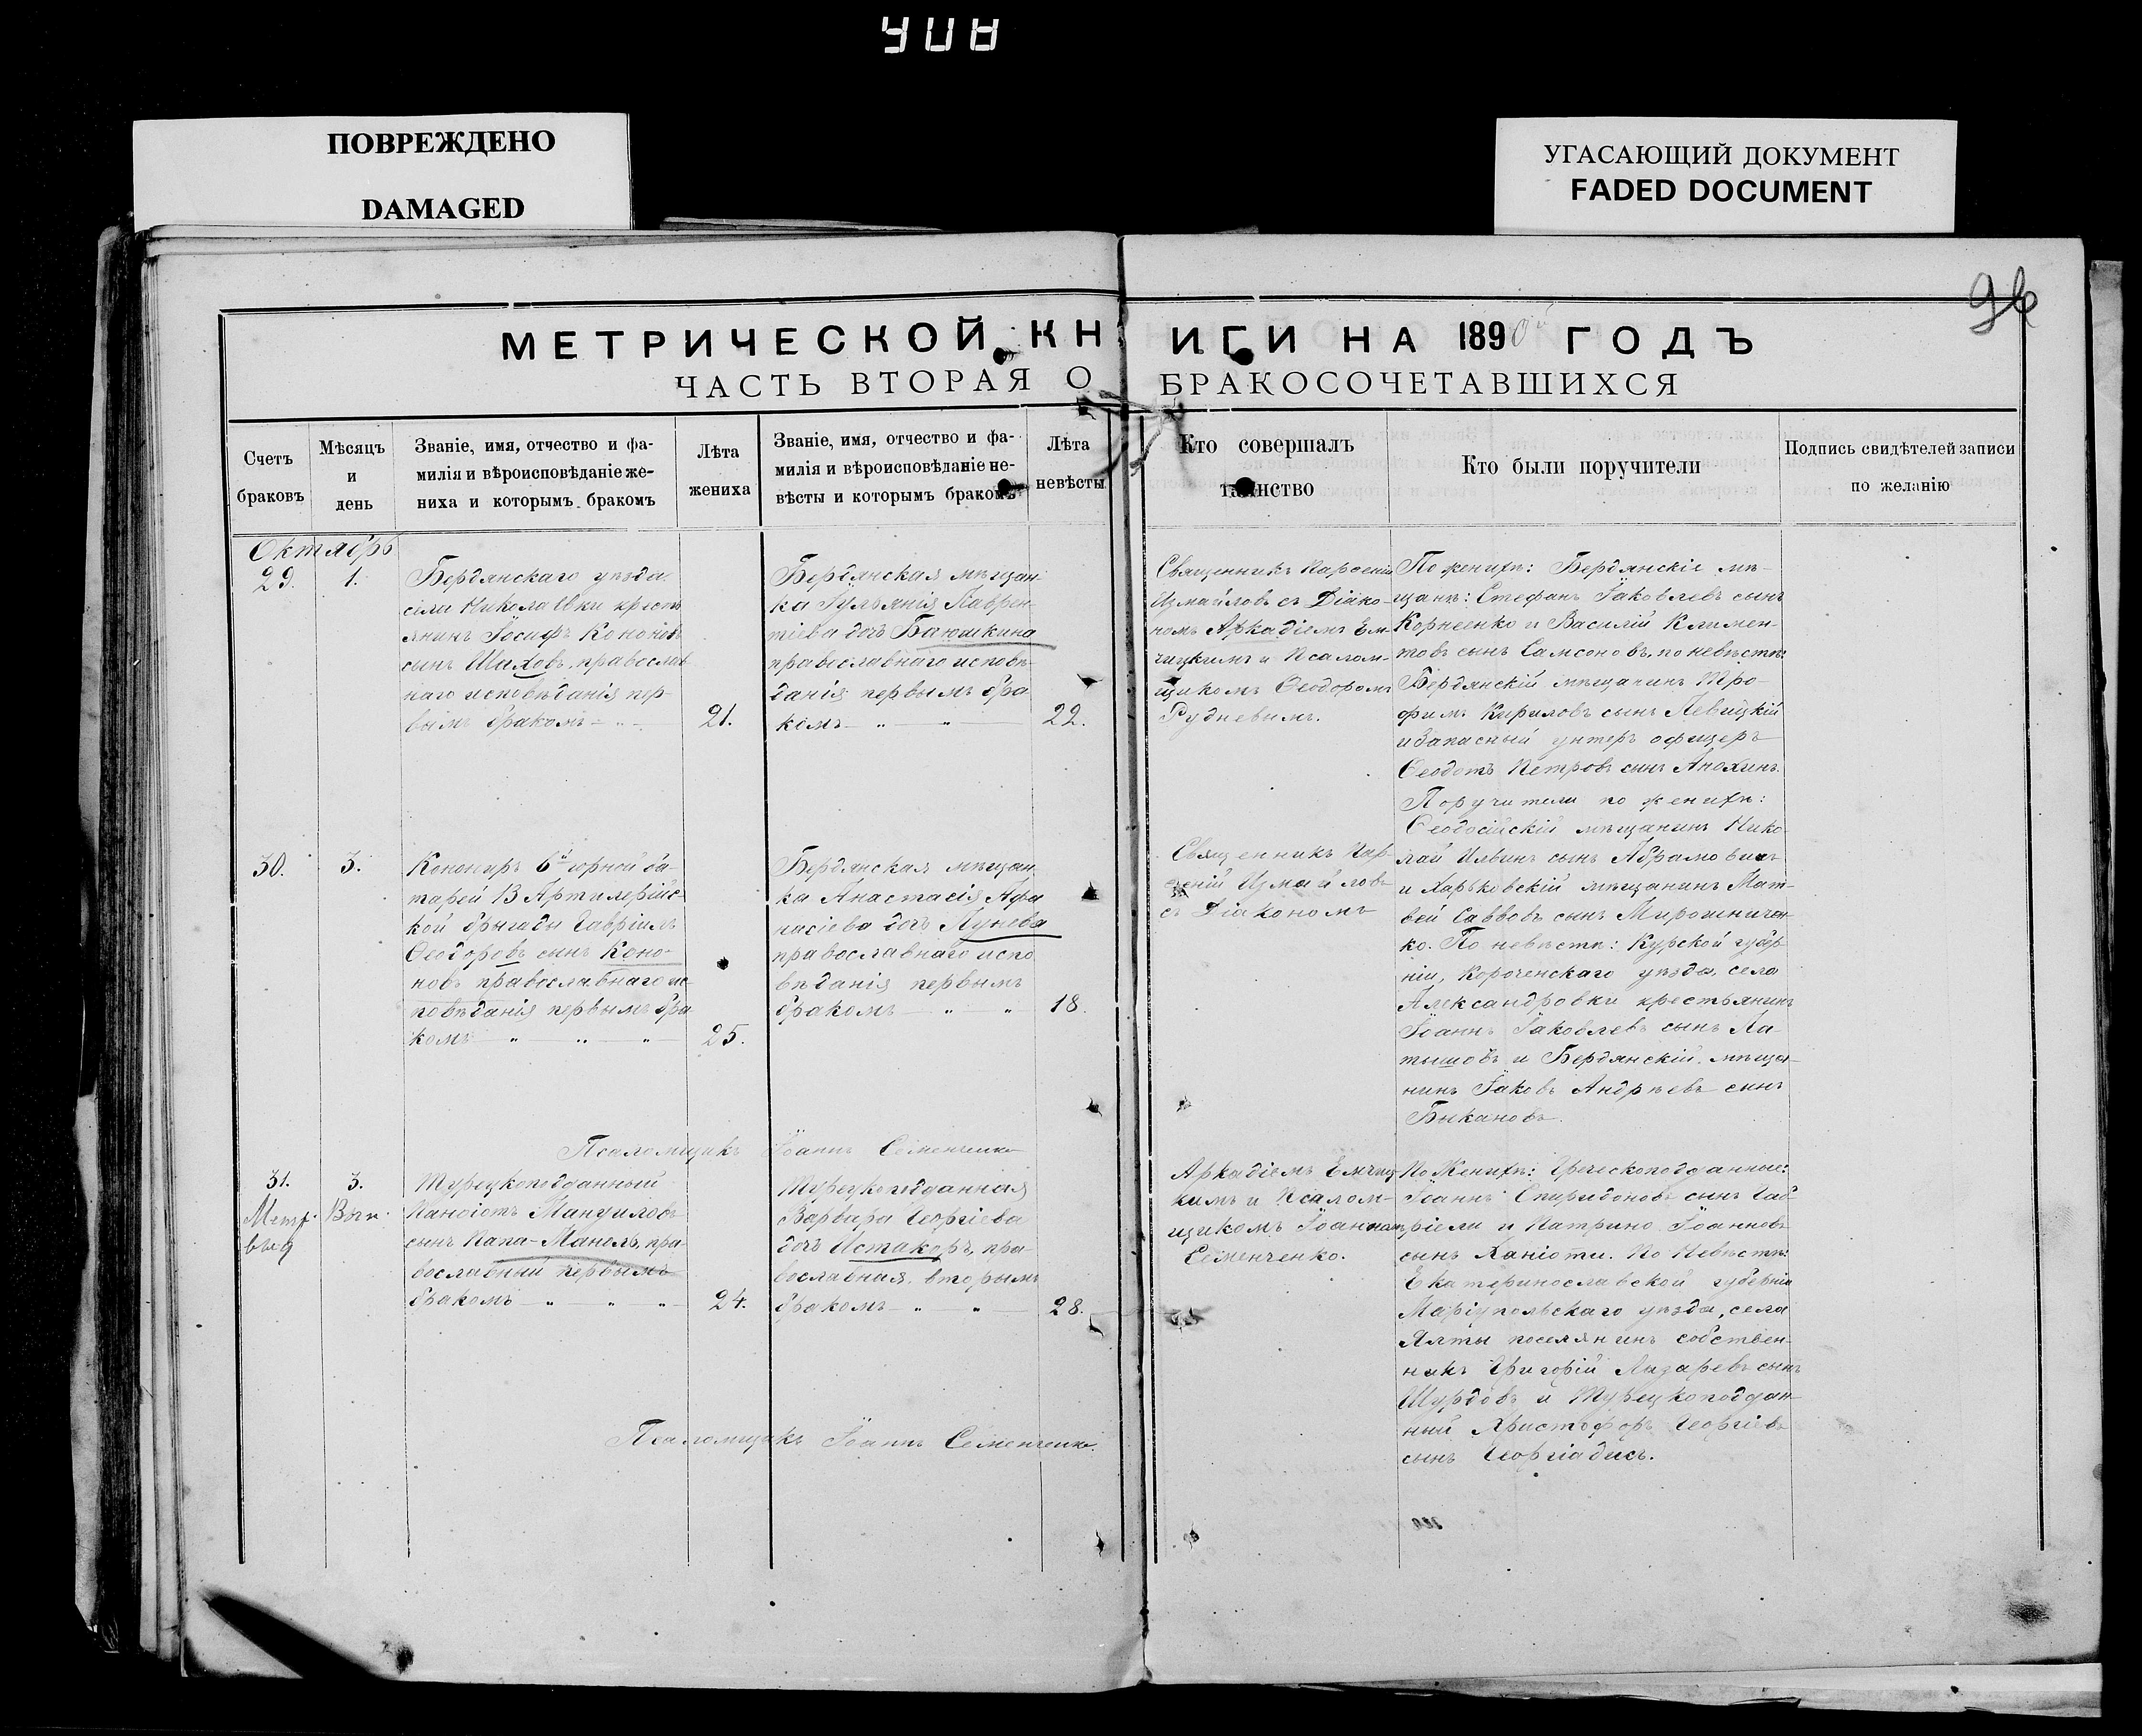 ПОВРЕЖДЕНО
DAMAGED
УГАСАЮЩИЙ ДОКУМЕНТ
FADED DOCUMENT
96
МЕТРИЧЕСКОЙ КНИГИ НА 1890й ГОДЪ
ЧАСТЬ ВТОРАЯ О БРАКОСОЧЕТАВШИХСЯ
Счетъ
браковъ
Мѣсяцъ
и
день
Званіе, имя, отчество и фа-
милія и вѣроисповѣданіе же-
ниха и которымъ бракомъ
Лѣта
жениха
Званіе, имя, отчество и фа-
милія и вѣроисповѣданіе не-
вѣсты и которымъ бракомъ
Лѣта
невѣсты
Кто совершалъ
таинство
Кто были поручители
Подпись свидѣтелей записи
по желанію
Октябрь
29. 1.
Бердянскаго уѣзда
села Николаевки кресть
янинъ Іосифъ Кононовъ
сынъ Шаховъ, православ
наго исповѣданія пер-
вымъ бракомъ
21.
Бердянская мѣщан
ка Іульянія Лаврен-
тіева дочь Баюшкина
православнаго исповѣ-
данія первымъ бра
комъ
22.
Священникъ Парсеній
Измайловъ съ Діако-
номъ Аркадіемъ Ем-
чицкимъ и Псалом-
щикомъ Ѳеодоромъ
Рудневымъ.
По женихѣ: Бердянскіе мѣ-
щане: Стефанъ Іаковлевъ сынъ
Корнеенко и Василій Климен-
товъ сынъ Самсоновъ, по невѣстѣ:
Бердянскій мѣщанинъ Тро-
фимъ Кириловъ сынъ Левицкій
и запасный унтеръ офицеръ
Ѳеодотъ Петровъ сынъ Анохинъ.
30. 3.
Конониръ 6й горной ба-
тареи 13 Артилерійс-
кой бригады Гавріилъ
Ѳеодоровъ сынъ Коно-
новъ православнаго ис-
повѣданія первымъ бра
комъ
25.
Бердянская мѣщан
ка Анастасія Афа
насіева дочь Лунева
православнаго испо
вѣданія первымъ
бракомъ
18.
Священникъ Пар-
сеній Измайловъ
съ Діакономъ
Поручители по женихѣ:
Ѳеодосійскій мѣщанинъ Нико-
лай Ильинъ сынъ Абрамовичъ
и Харьковскій мѣщанинъ Мат-
вей Савовъ сынъ Мирошничен-
ко. По невѣстѣ: Курской губер
ніи, Короченскаго уѣзда, села
Александровки крестьянинъ
Іоаннъ Іаковлевъ сынъ Ла-
тышовъ и Бердянскій мѣща-
нинъ Іаковъ Андреевъ сынъ
Быкановъ.
Псаломщикъ Іоаннъ Семенченко
31. 3.
Турецкоподданный
Панаіотъ Мануиловъ
сынъ Папа-Манель, пра-
вославный первымъ
бракомъ
24.
Турецкоподданная
Варвара Георгіева
дочь Истакоръ, пра-
вославная, вторымъ
бракомъ
28.
Аркадіемъ Емчиц-
кимъ и Псалом-
щикомъ Іоанномъ
Семенченко.
По Женихѣ: Греческоподданные:
Іоаннъ Спиридоновъ сынъ Гав-
ріели и Патрино Іоанновъ
сынъ Ханіоти. По Невѣстѣ:
Екатеринославской губерніи
Маріупольскаго уѣзда, села
Ялты поселянинъ собствен-
никъ Григорій Лазаревъ сынъ
Шурдовъ и Турецкоподдан-
ный Христофоръ Георгіевъ
сынъ Георгіадисъ.
Псаломщикъ Іоаннъ Семенченко.